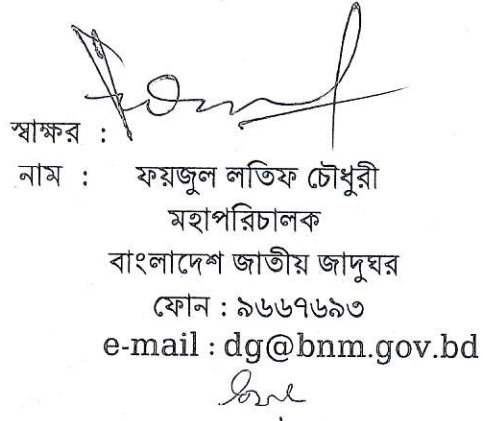 স্বাক্ষর :
নাম : ফয়জুল লতিফ চৌধুরী
মহাপরিচালক
বাংলাদেশ জাতীয় জাদুঘর
ফোন : ৯৬৬৭৬৯৩
e-mail : dg@bnm.gov.bd